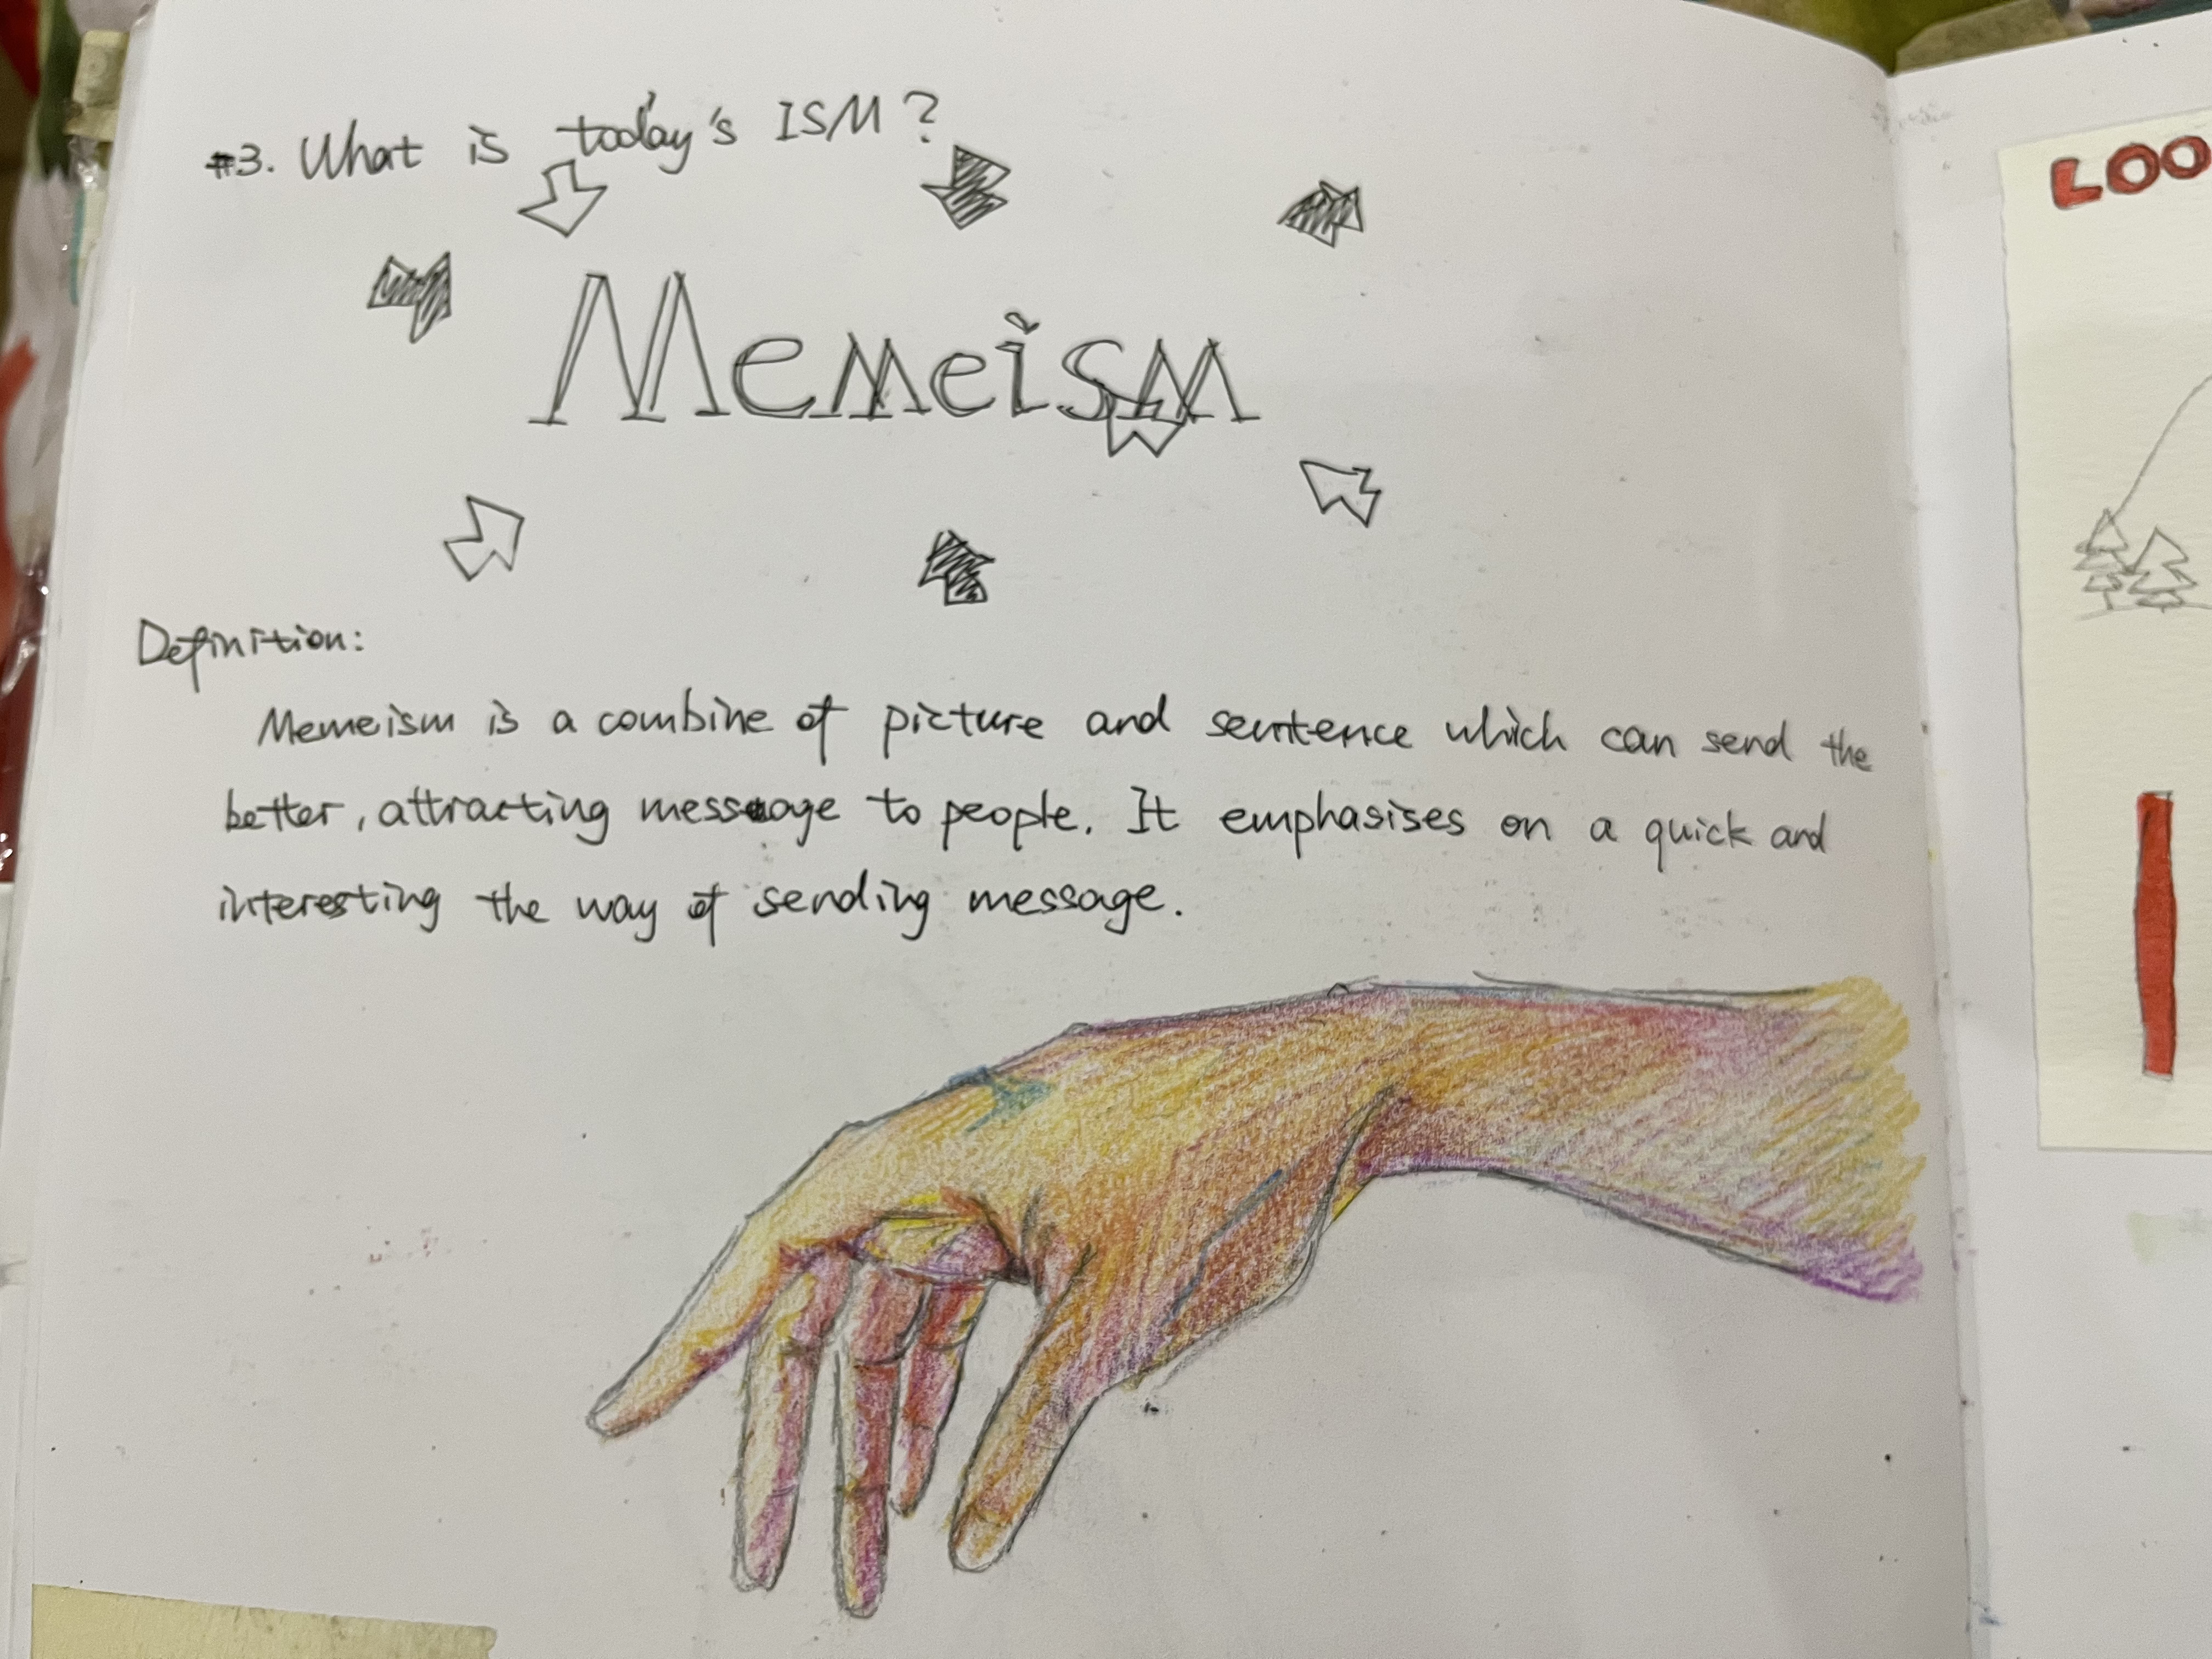 #3. What is today's ISM?
Memeism
Definition:
Memeism is a combine of picture and sentence which can send the
better, attracting message to people. It emphasises on a quick and
interesting the way of sending message.
LOO